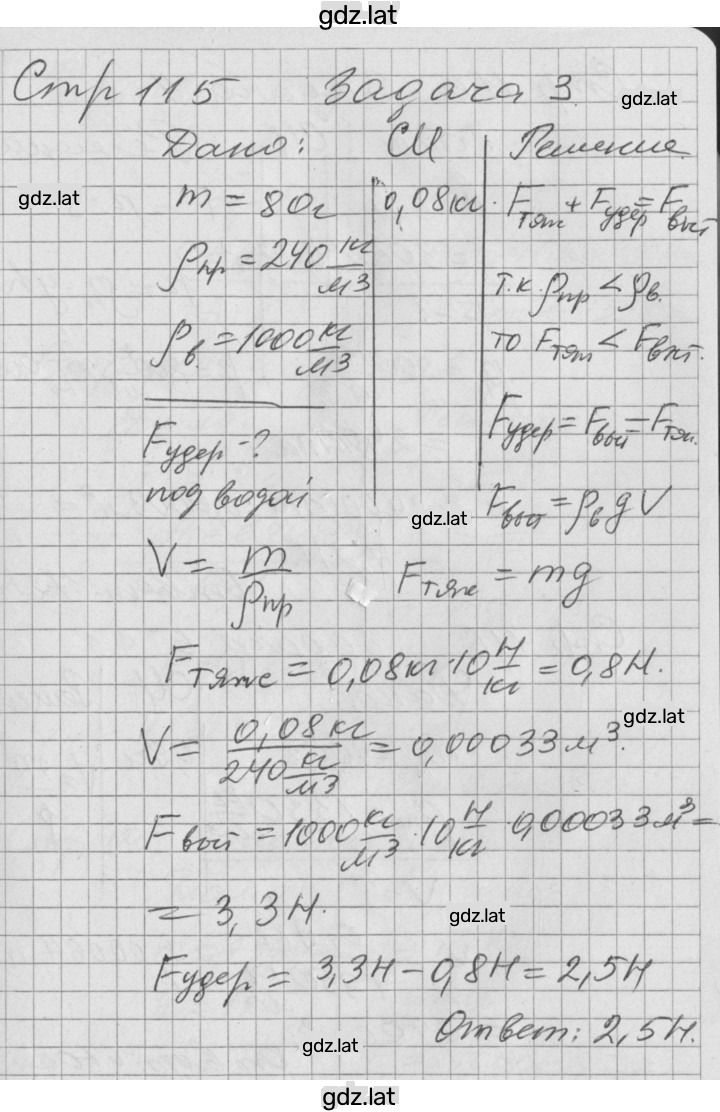 gdz.lat
Стр 115 Задача 3.
gdz.lat
Дано: СИ Решение.
gdz.lat
m = 80г 0,08кг. Fтяж + Fудер = Fвыт
ρпр = 240 кг/м3
т.к. ρпр < ρв.
ρв = 1000 кг/м3
то Fтяж < Fвыт.
Fудер = Fвыт − Fтяж.
Fудер -?
под водой
Fвыт = ρв g V
gdz.lat
V = m/ρпр Fтяж = mg
Fтяж = 0,08кг·10 Н/кг = 0,8Н.
gdz.lat
V = 0,08кг/240 кг/м3 = 0,00033 м3.
Fвыт = 1000 кг/м3 · 10 Н/кг · 0,00033 м3 =
= 3,3Н.
gdz.lat
Fудер = 3,3Н − 0,8Н = 2,5Н
Ответ: 2,5Н.
gdz.lat
gdz.lat